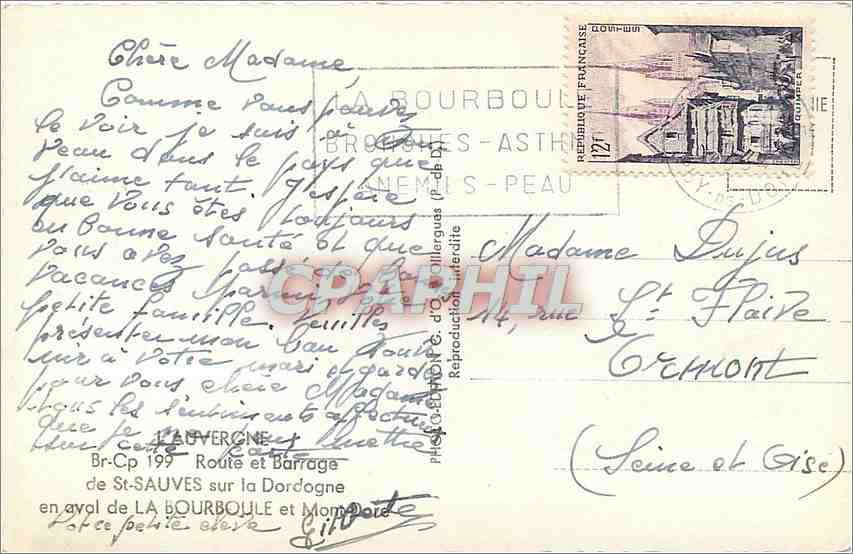 Chère Madame,
Comme vous pouvez
le voir je suis à
veau dans le pays que
j'aime tant. J'espère
que vous êtes toujours
en bonne santé et que
vous avez passé de bonnes
vacances parmi votre
petite famille. Veuillez
présenter mon bon souve
nir à votre mari et gardez
pour vous chère Madame
tous les sentiments affectueux
que je
sur cette carte
Votre petite élève
Gilberte
L'AUVERGNE
Br-Cp 199 Route et Barrage
de St-SAUVES sur la Dordogne
en aval de LA BOURBOULE et Mont-Dore
PHOTO-EDITION G. d'O (P.-de-D.)
Reproduction interdite
LA BOURBOULE
BRONCHES - ASTHME
ANEMIES - PEAU
PUY-DE-DÔME
RÉPUBLIQUE FRANÇAISE
POSTES
12F
QUIMPER
CPARPHIL
Madame Dujus
14, rue St Flaive
Ermont
(Seine et Oise)